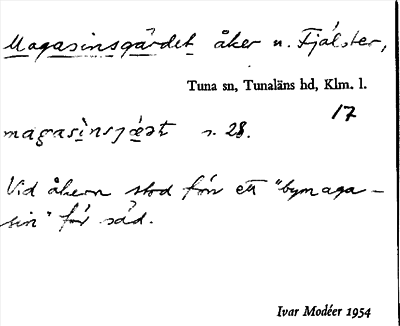 Magasinsgärdet åker n. Fjälster,
Tuna sn, Tunaläns hd, Klm. l.
17
magasinsjæ̀ət s. 28.
Vid åkern stod förr ett "bymaga-
sin" för säd.
Ivar Modéer 1954